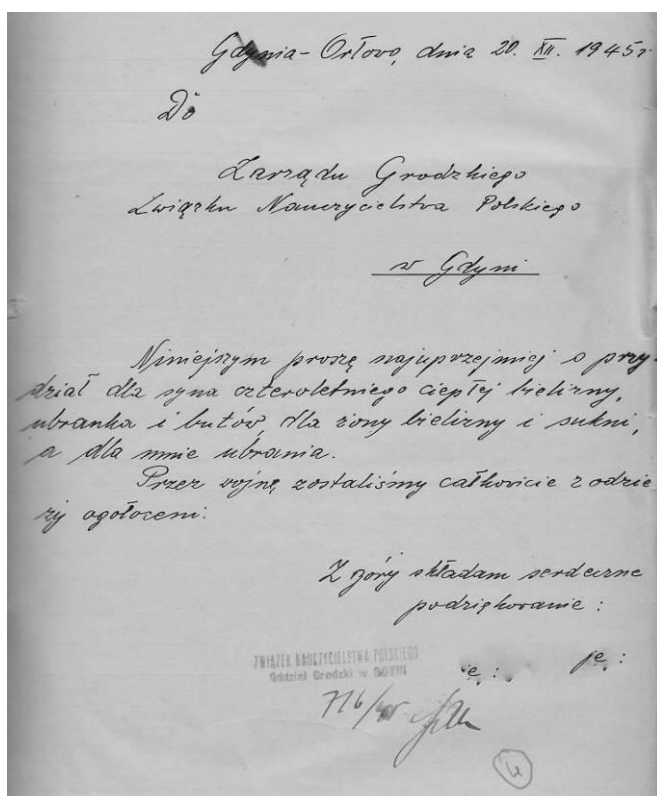 Gdynia-Orłowo, dnia 20. XII. 1945 r.
Do
Zarządu Grodzkiego
Związku Nauczycielstwa Polskiego
w Gdyni
Niniejszym proszę najuprzejmiej o przy-
dział dla syna czteroletniego ciepłej bielizny,
ubranka i butów, dla żony bielizny i sukni,
a dla mnie ubrania.
Przez wojnę zostaliśmy całkowicie z odzie
ży ogołoceni.
Z góry składam serdeczne
podziękowanie:
ZWIĄZEK NAUCZYCIELSTWA POLSKIEGO
Oddział Grodzki w GDYNI
716/45
4